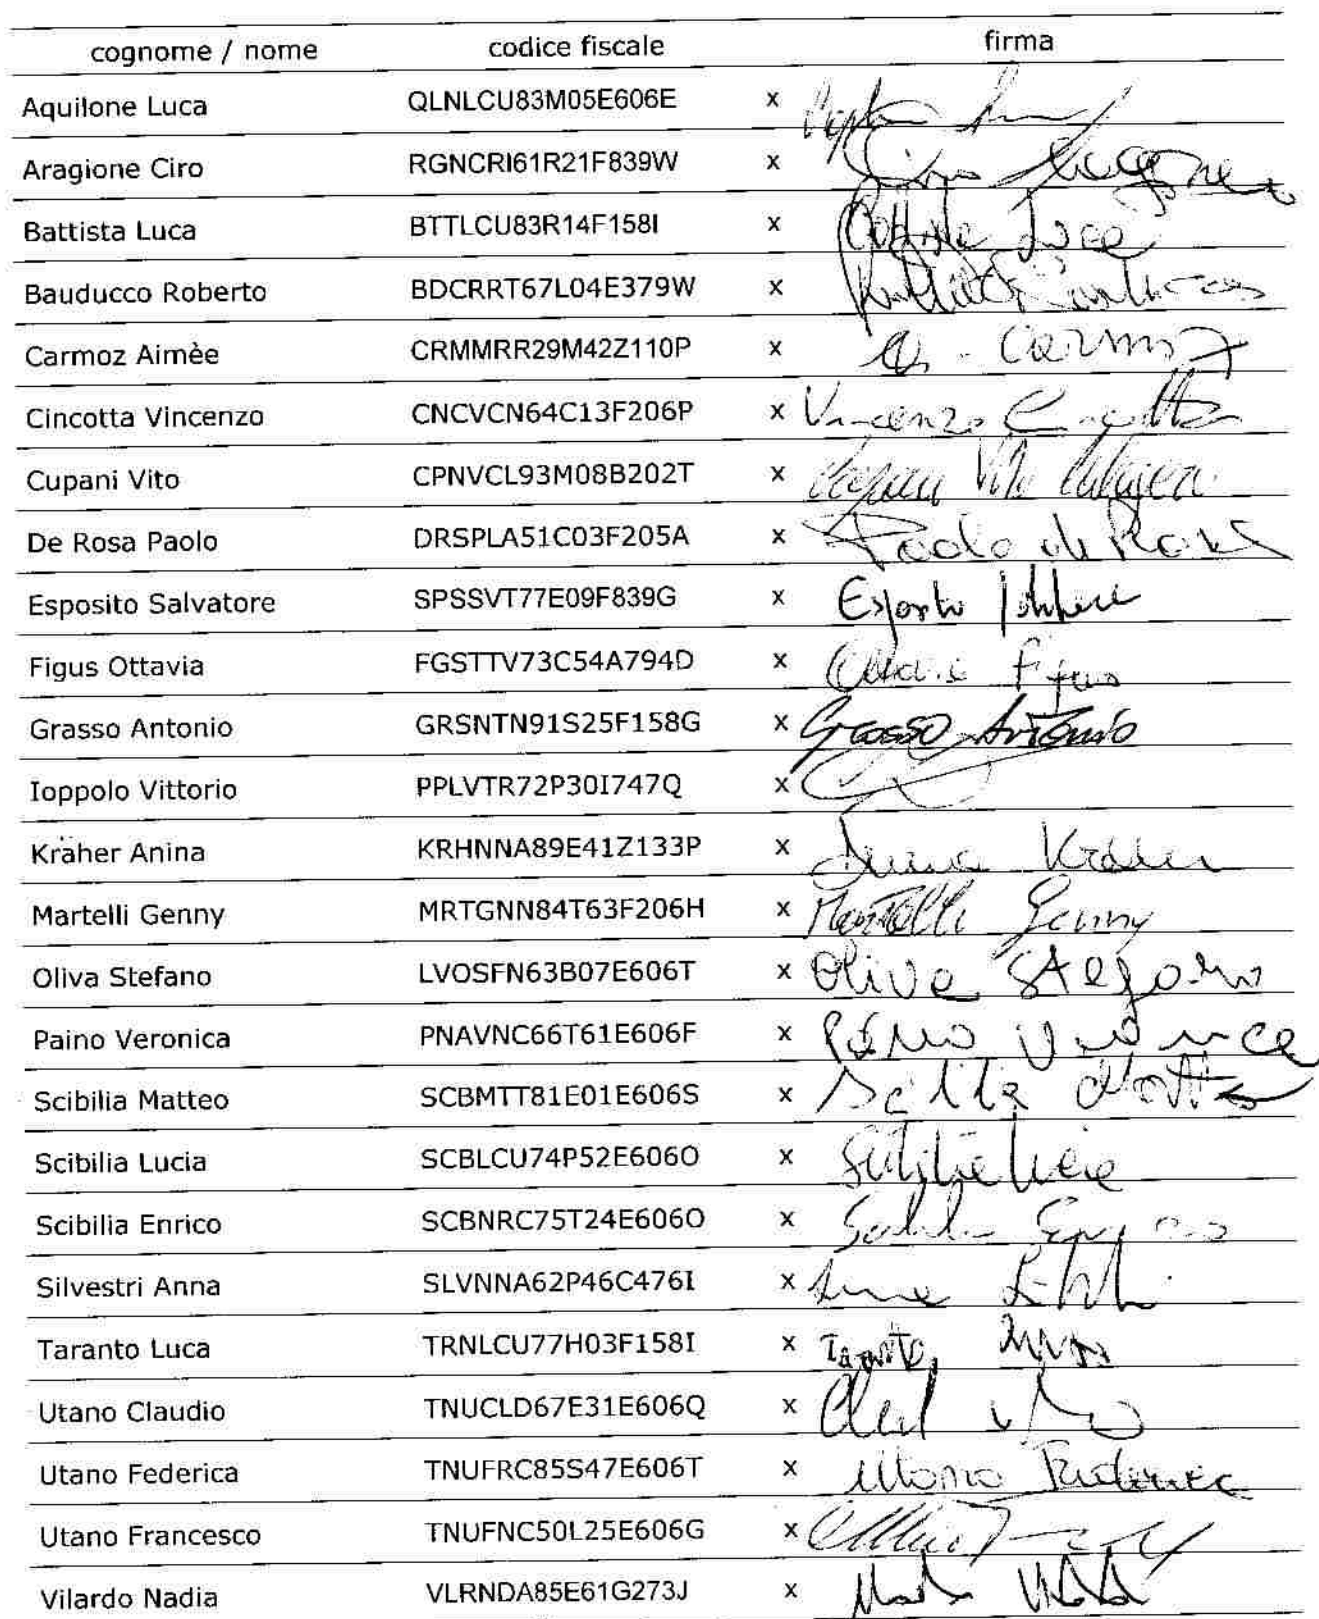 cognome / nome codice fiscale firma
Aquilone Luca QLNLCU83M05E606E x
Aragione Ciro RGNCRI61R21F839W x Ciro Aragione
Battista Luca BTTLCU83R14F158I x Battista Luca
Bauducco Roberto BDCRRT67L04E379W x
Carmoz Aimèe CRMMRR29M42Z110P x A. Carmoz
Cincotta Vincenzo CNCVCN64C13F206P x Vincenzo Cincotta
Cupani Vito CPNVCL93M08B202T x Cupani Vito
De Rosa Paolo DRSPLA51C03F205A x Paolo de Rosa
Esposito Salvatore SPSSVT77E09F839G x Esposito Salvatore
Figus Ottavia FGSTTV73C54A794D x Ottavia Figus
Grasso Antonio GRSNTN91S25F158G x Grasso Antonio
Ioppolo Vittorio PPLVTR72P30I747Q x
Kräher Anina KRHNNA89E41Z133P x Anina Kräher
Martelli Genny MRTGNN84T63F206H x Martelli Genny
Oliva Stefano LVOSFN63B07E606T x Oliva Stefano
Paino Veronica PNAVNC66T61E606F x Paino Veronica
Scibilia Matteo SCBMTT81E01E606S x Scibilia Matteo
Scibilia Lucia SCBLCU74P52E606O x Scibilia Lucia
Scibilia Enrico SCBNRC75T24E606O x Scibilia Enrico
Silvestri Anna SLVNNA62P46C476I x Anna
Taranto Luca TRNLCU77H03F158I x Taranto
Utano Claudio TNUCLD67E31E606Q x
Utano Federica TNUFRC85S47E606T x Utano Federica
Utano Francesco TNUFNC50L25E606G x
Vilardo Nadia VLRNDA85E61G273J x Nadia Vilardo